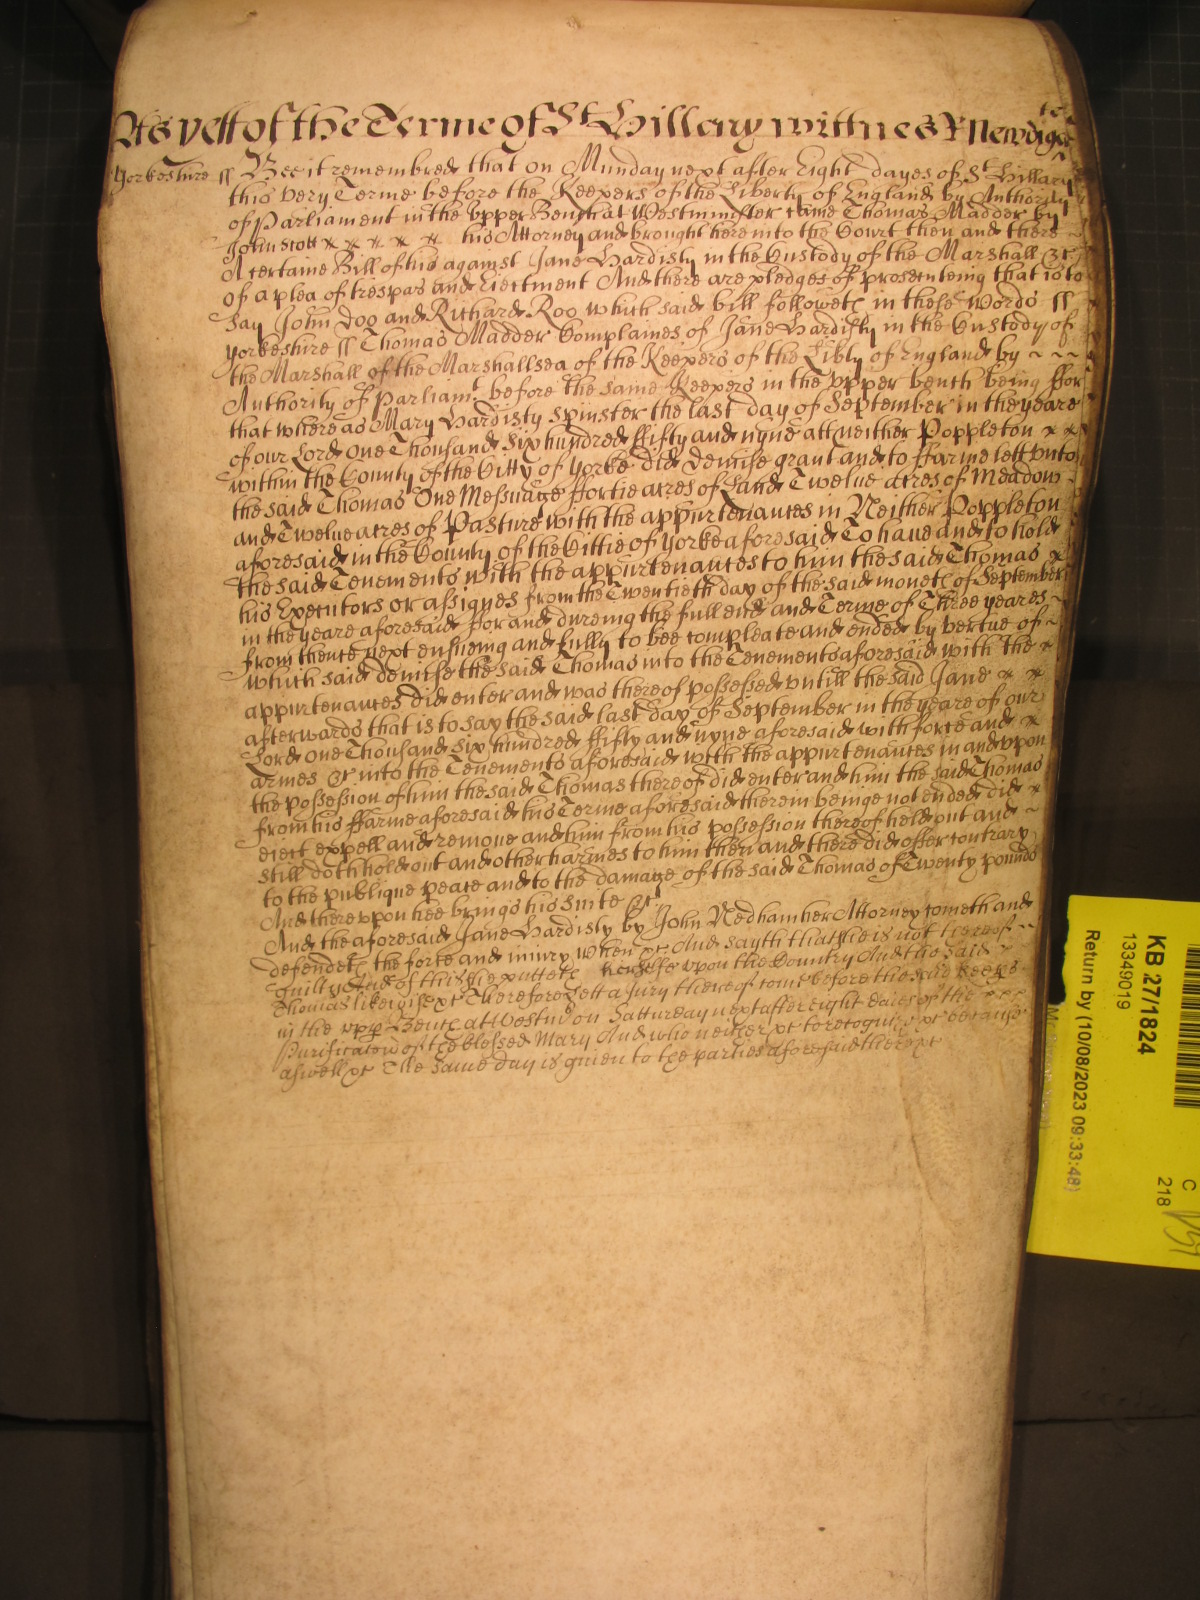 As yett of the Terme of St Hillary wittnes R Newdigate
Yorkeshire ss Bee it remembred that on Munday next after Eight dayes of St Hillary
this very Terme before the Keepers of the Liberty of England by Authority
of Parliament in the vpper Bench at Westminster came Thomas Madder by
John Scott x x x x x his Attorney and brought here into the Court then and there ~
A certaine Bill of his against Jane Hardisty in the Custody of the Marshall &c
of a plea of trespas and Eiectment And there are pledges of prosecuteing that is to
say John Doo and Richard Roo which said bill followeth in these words ss
Yorkeshire ss Thomas Madder Complaines of Jane Hardisty in the Custody of
the Marshall of the Marshallsea of the Keepers of the Libty of England by ~ ~ ~
Authority of Parliamt before the same Keepers in the vpper bench being ffor
that whereas Mary Hardisty Spinster the last day of September in the yeare
of our Lord One Thousand Six hundred ffifty and nyne att neither Poppleton x x
within the County of the Citty of Yorke did demise grant and to ffarme lett vnto
the said Thomas One Messuage ffortie acres of Land Twelue acres of Meadow
and Twelue acres of Pasture with the appurtenances in Neither Poppleton
aforesaid in the County of the Cittie of Yorke aforesaid To haue and to hold
the said Tenements with the appurtenances to him the said Thomas x
his Executors or assignes from the Twentieth day of the said moneth of September
in the yeare aforesaid for and dureing the full end and Terme of Three yeares ~
from thence next ensueing and fully to bee compleate and ended by vertue of ~
which said demise the said Thomas into the Tenements aforesaid with the x
appurtenances did enter and was thereof possessed vntill the said Jane x x
afterwards that is to say the said last day of September in the yeare of our
Lord One Thousand Six hundred ffifty and nyne aforesaid with force and x
armes &c into the Tenements aforesaid with the appurtenances in and vpon
the possession of him the said Thomas thereof did enter and him the said Thomas
from his ffarme aforesaid his Terme aforesaid therein beinge not ended did x
eiect expell and remoue and him from his possession thereof held out and ~
still doth hold out and other harmes to him then and there did offer contrary
to the publique peace and to the damage of the said Thomas of Twenty pounds
And therevpon hee brings his suite &c
And the aforesaid Jane Hardisty by John Nedham her Attorney cometh and
defendeth the force and iniury when &c And sayth that she is not thereof ~
guilty And of this shee putteth herselfe vpon the Country And the said
Thomas likewise &c Therefore lett a Jury thereof come before the said Keeps
in the vpp Bench at Westmr on Satturday next after eight daies of the
Purificacon of the blessed Mary And who neither &c to recognize &c because
aswell &c The same day is giuen to the parties aforesaid there &c
KB 27/1824
13349019
Return by (10/08/2023 09:33:48)
C
218